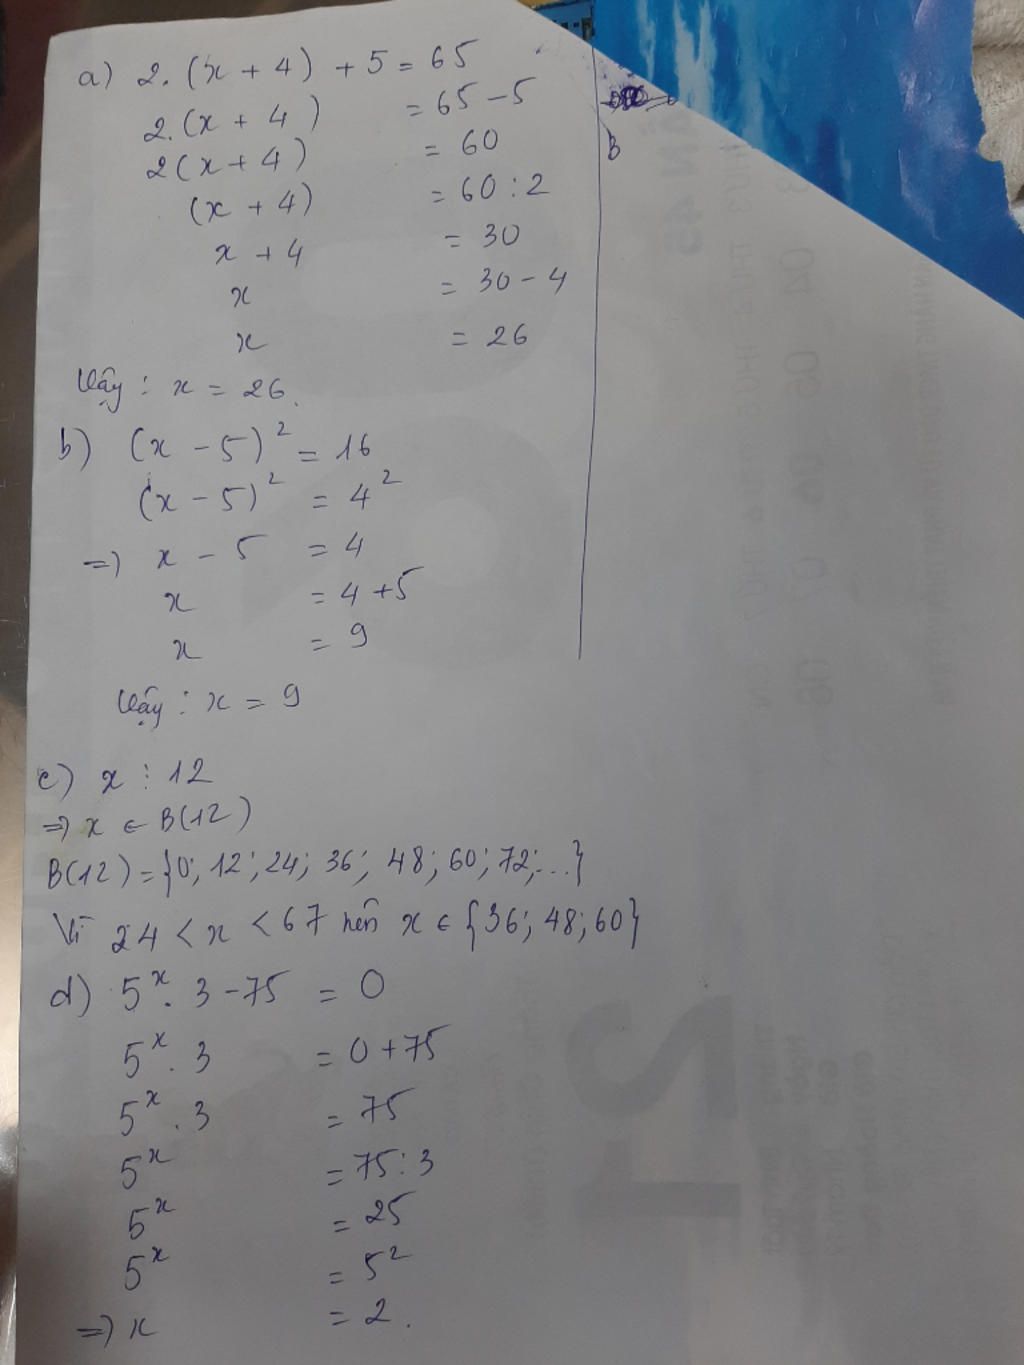 a) 2. (x + 4) + 5 = 65
2.(x + 4) = 65 - 5
2(x + 4) = 60
(x + 4) = 60 : 2
x + 4 = 30
x = 30 - 4
x = 26
Vậy : x = 26.
b) (x - 5)² = 16
(x - 5)² = 4²
=> x - 5 = 4
x = 4 + 5
x = 9
Vậy : x = 9
c) x ⋮ 12
=> x ∈ B(12)
B(12) = {0; 12; 24; 36; 48; 60; 72; ...}
Vì 24 < x < 67 nên x ∈ {36; 48; 60}
d) 5ˣ. 3 - 75 = 0
5ˣ . 3 = 0 + 75
5ˣ . 3 = 75
5ˣ = 75 : 3
5ˣ = 25
5ˣ = 5²
=> x = 2.
B